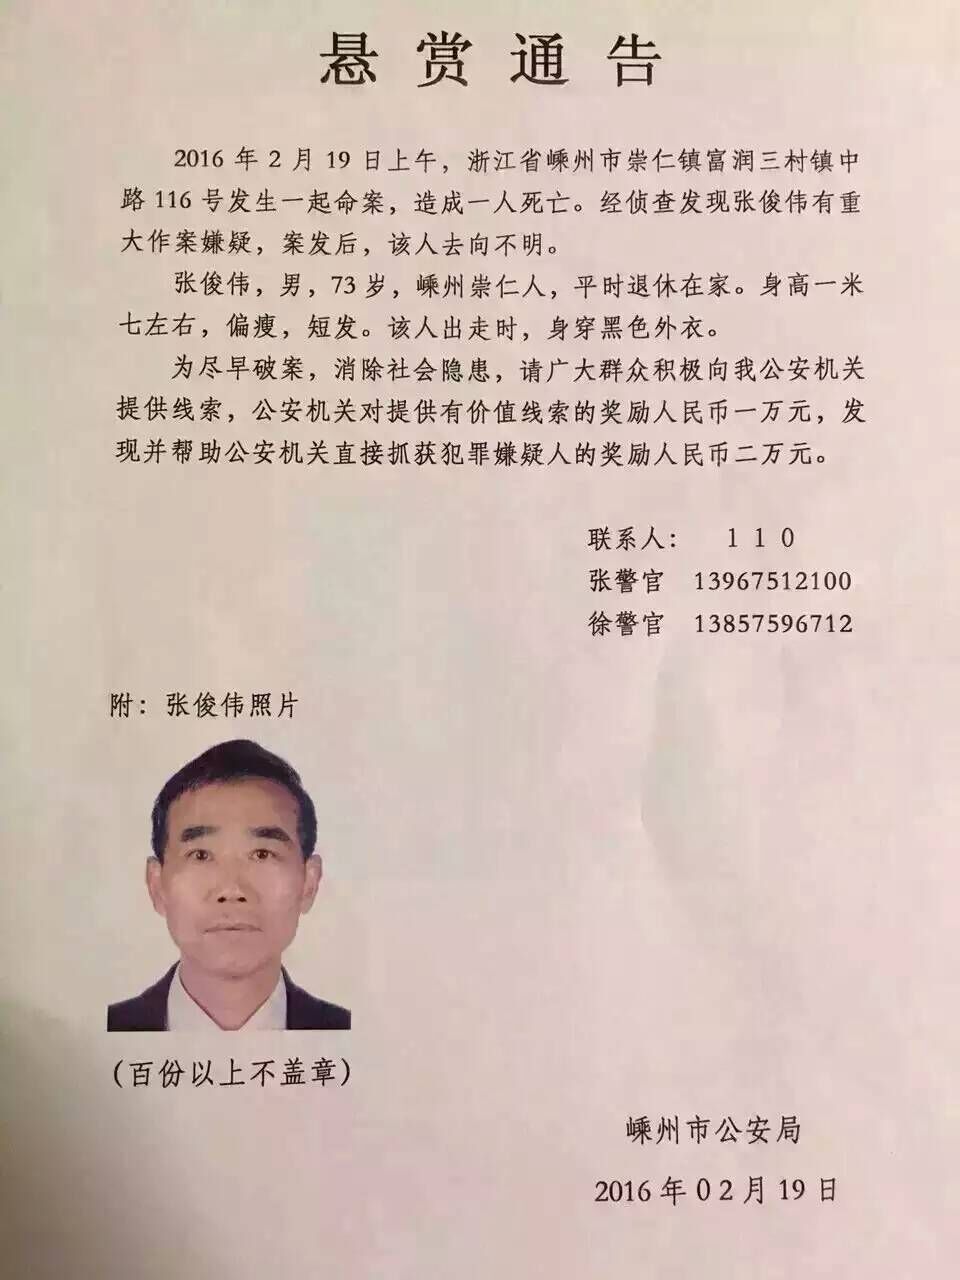 悬赏通告
2016 年 2 月 19 日上午，浙江省嵊州市崇仁镇富润三村镇中
路 116 号发生一起命案，造成一人死亡。经侦查发现张俊伟有重
大作案嫌疑，案发后，该人去向不明。
张俊伟，男，73 岁，嵊州崇仁人，平时退休在家。身高一米
七左右，偏瘦，短发。该人出走时，身穿黑色外衣。
为尽早破案，消除社会隐患，请广大群众积极向我公安机关
提供线索，公安机关对提供有价值线索的奖励人民币一万元，发
现并帮助公安机关直接抓获犯罪嫌疑人的奖励人民币二万元。
联系人： 110
张警官 13967512100
徐警官 13857596712
附：张俊伟照片
（百份以上不盖章）
嵊州市公安局
2016 年 02 月 19 日